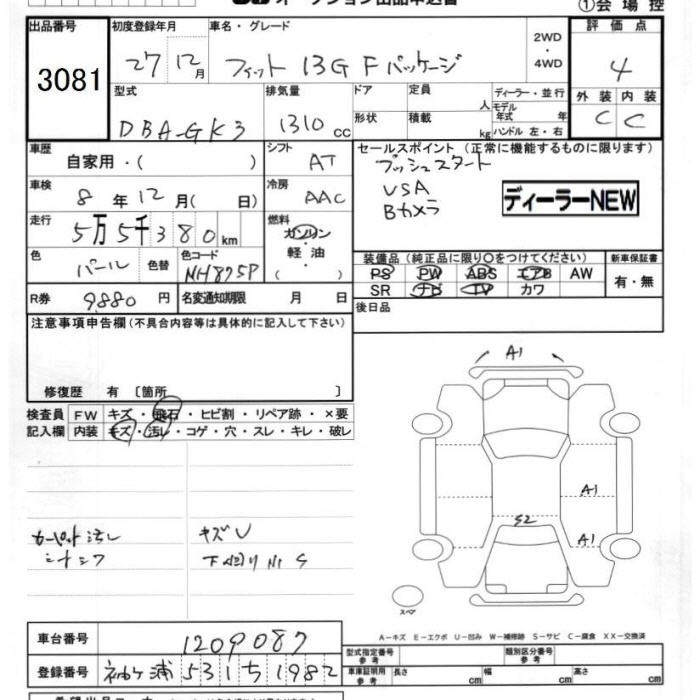 ①会場控
出品番号 3081
初度登録年月 27 12月
車名・グレード フィット 13G Fパッケージ
2WD・4WD
評価点 4
型式 DBA-GK3
排気量 1310 cc
ドア 形状
定員 人
積載 kg
ディーラー・並行
モデル年式 年
ハンドル 左・右
外装 C
内装 C
車歴 自家用・( )
シフト AT
セールスポイント (正常に機能するものに限ります)
プッシュスタート
USA
Bカメラ
ディーラーNEW
車検 8年12月( 日)
冷房 AAC
走行 5万5千380km
燃料 ガソリン・軽油・( )
色 パール
色替
色コード NH875P
装備品 (純正品に限り○をつけてください)
新車保証書
PS PW ABS エアB AW
有・無
SR ナビ TV カワ
R券 9880円
名変通知期限 月 日
後日品
注意事項申告欄(不具合内容等は具体的に記入して下さい)
修復歴 有 〔箇所 〕
検査員記入欄
FW キズ・飛石・ヒビ割・リペア跡・×要
内装 キズ・汚レ・コゲ・穴・スレ・キレ・破レ
A1
A1
S2
A1
カーペット汚レ
シートシワ
キズU
スペア
A-キズ E-エクボ U-凹み W-補修跡 S-サビ C-腐食 XX-交換済
車台番号 1209087
登録番号 袖ヶ浦 531 ち 1982
型式指定番号 参考
類別区分番号 参考
車庫証明用 参考
長さ cm
幅 cm
高さ cm